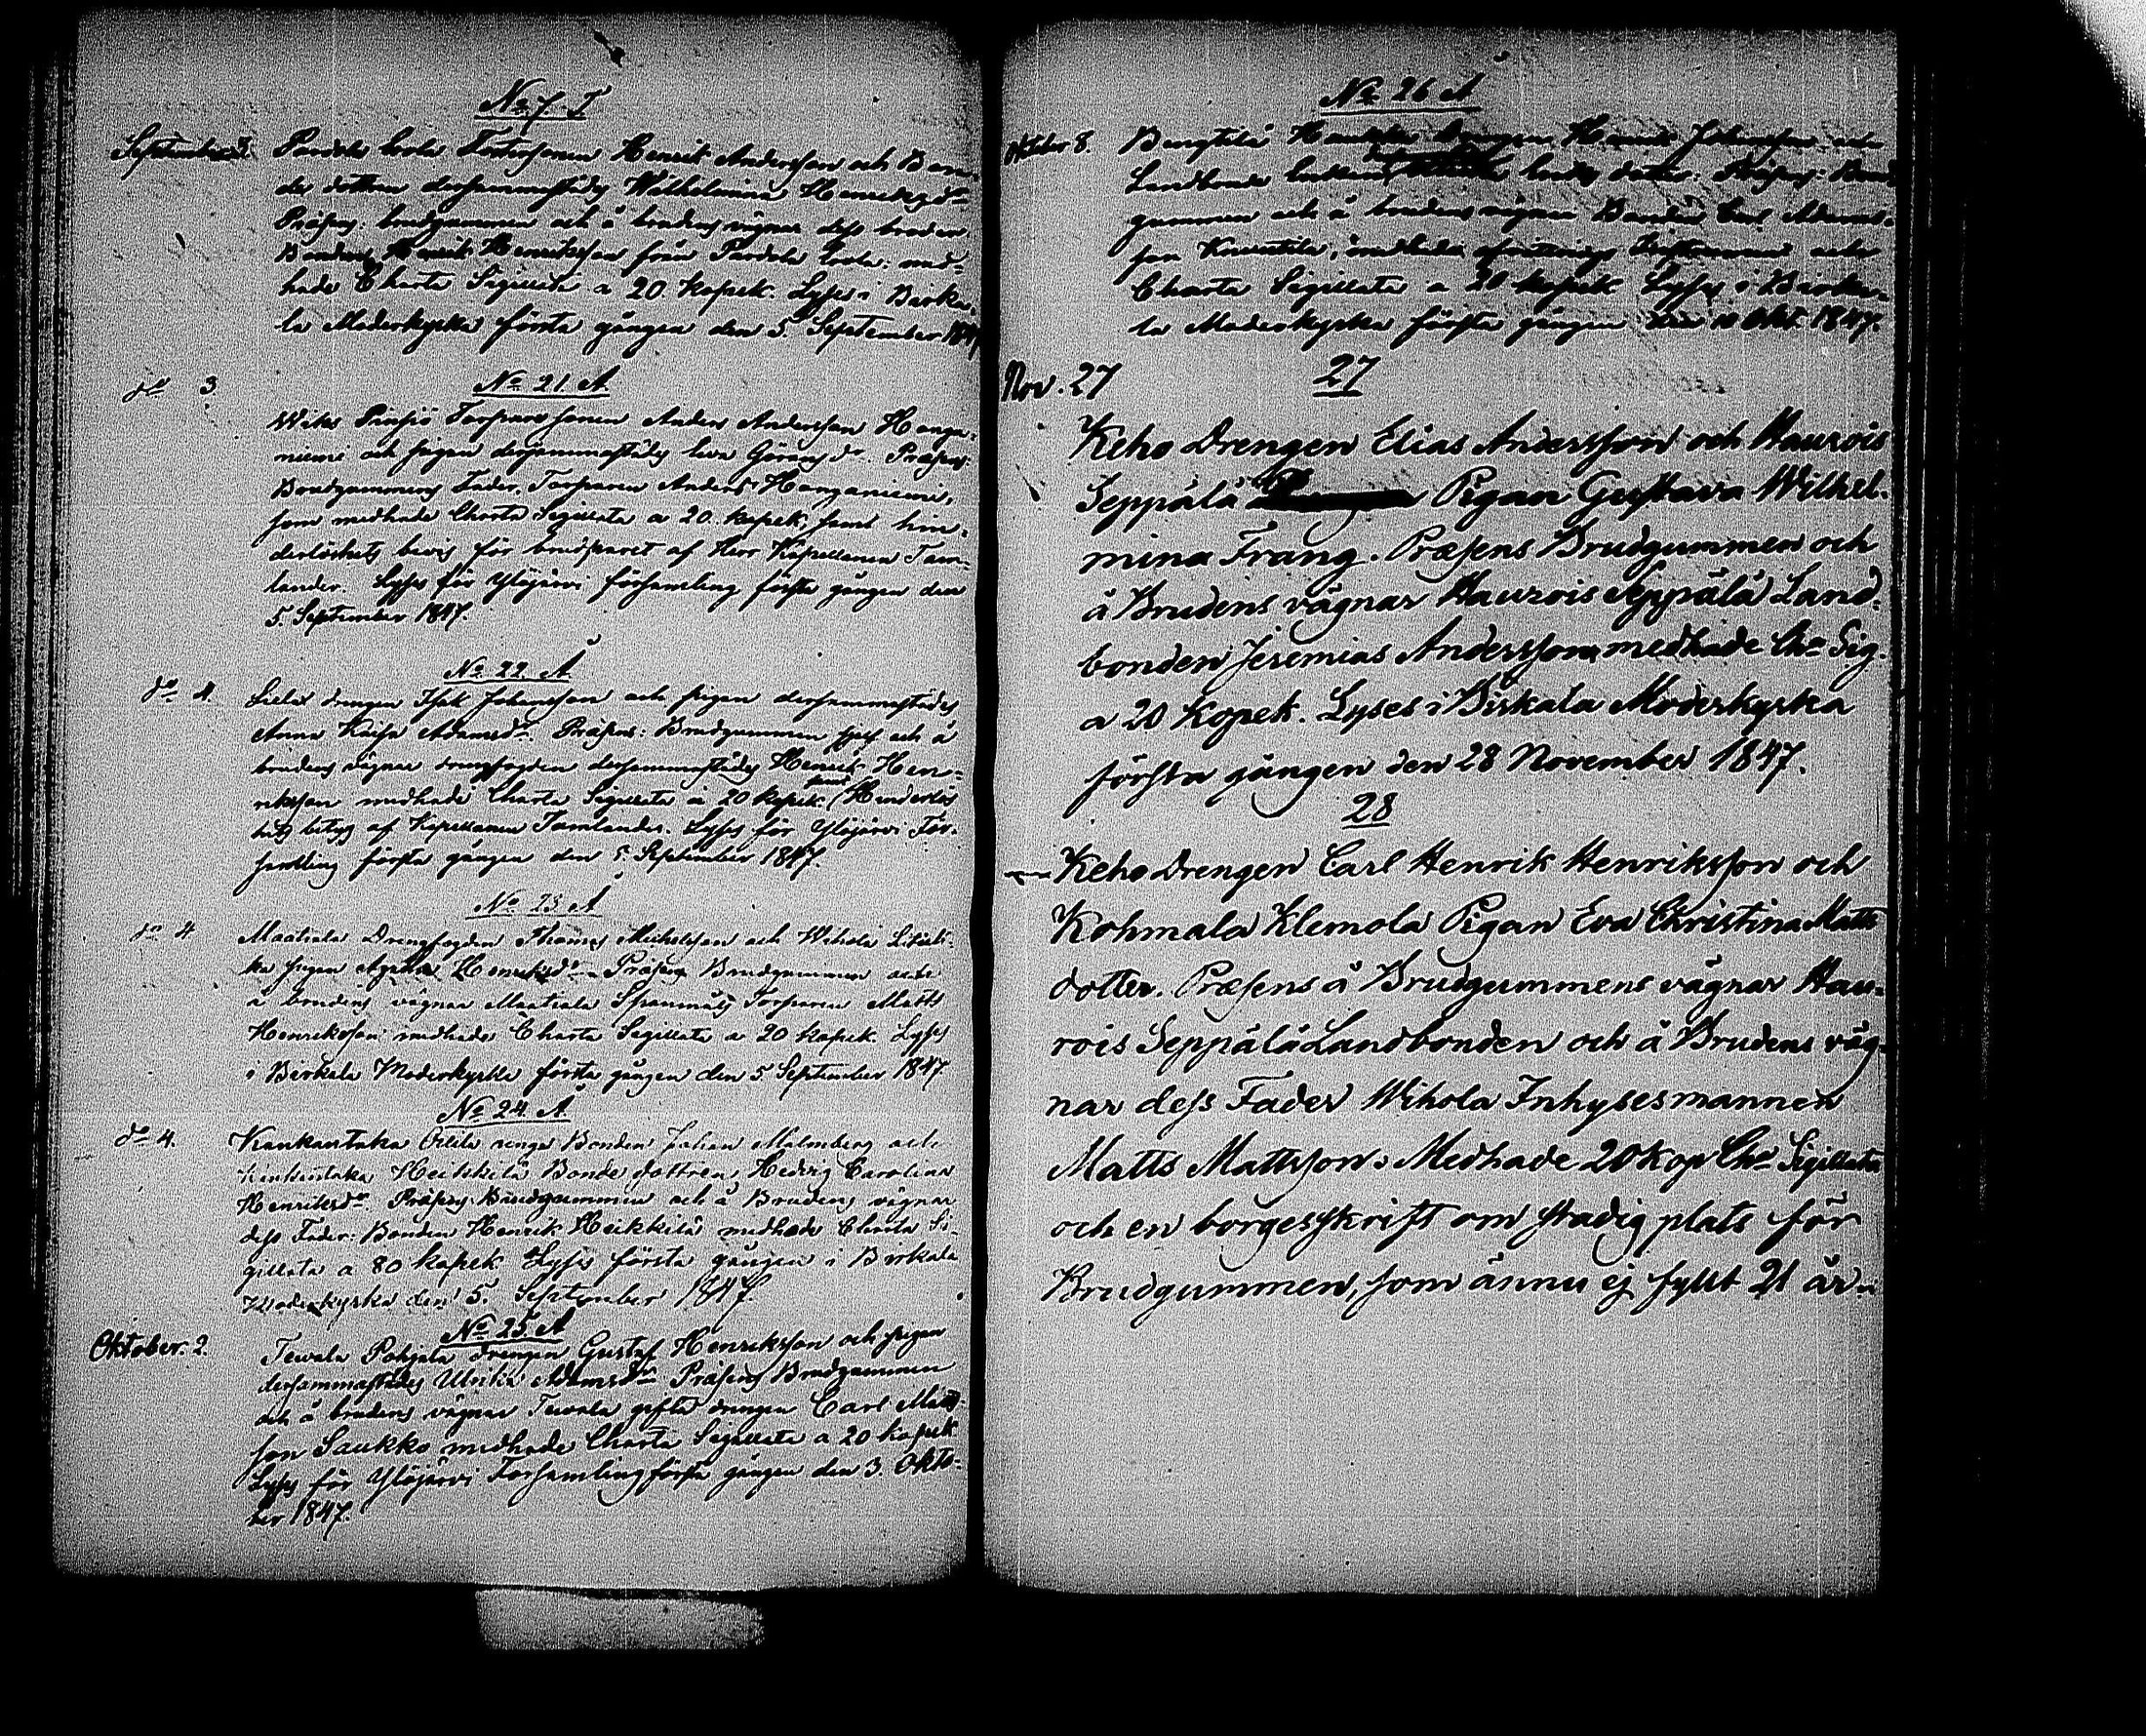 No 7. T.
September 3. Pardela Erola Torparesonen Henrik Andersson och Bon-
de dottren dersammastädes Wilhelmina Henriksdr
Præsens: brudgummen och å brudens vägnar dess broder
Bonden Henrik Henriksson från Pardela Erola: med-
hade Charta Sigillata a 20. kopek. Lyses i Birka-
la Moderkyrka första gången den 5. September 1847
do 3. No 21. A.
Andersson Honga-
niemi och pigan dersammastädes Göransdr. Præsens:
Brudgummens Fader, Torparen Anders Honganiemi,
som medhade Charta Sigillata a 20. kopek, samt hin-
derlöshets bevis för brudparet af Herr Kapellanen Tam-
lander. Lyses för Ylöjärvi församling första gången den
5. September 1847.
No 22. A
do 4. drengen Isak Johansson och pigan dersammastädes
Anna Kaisa Adamsdr. Præsens: Brudgummen sjelf och å
brudens vägnar drengfogden dersammastädes Henrik Hen-
riksson medhade Charta Sigillata a 20 kopek samt Hinderlös-
hets betyg af Kapellanen Tamlander. Lyses för Ylöjärvi För-
samling första gången den 5. September 1847.
No 23. A
do 4. Maatiala Drengfogden Thomas Michelsson och Wihola
pigan Henriksdr Præsens Brudgummen och
å brudens vägnar Maatiala Torparen Matts
Henriksson: medhade Charta Sigillata a 20 kopek. Lyses
i Birkala Moderkyrka första gången den 5. September 1847
No 24. A.
do 4. Kankantaka unga Bonden Johan Malmberg och
Heikkilä Bonde dottren, Hedvig Carolina
Henriksdr. Præsens Brudgummen och å Brudens vägnar
dess Fader: Bonden Henrik Heikkilä medhade Charta Si-
gillata a 80 kopek Lyses första gången i Birkala
Moderkyrka den 5. September 1847.
No 25. A
Oktober. 2. Tewala Pohjala drengen Gustaf Henriksson och pigan
dersammastädes Ulrika Adamsdr Præsens Brudgummen
och å brudens vägnar Tewala gifta drengen Carl Matts-
son Saukko medhade Charta Sigillata a 20 kopek
Lyses för Ylöjärvi Församling första gången den 3. Okto-
ber 1847.
No 26 A
Oktober 8. Johansson och
Landbonde Præsens: Brud-
gummen och å brudens vägnar Bonden Carl Adams-
son medhade och
Charta Sigillata a 20 kopek Lyses i Birka-
la Moderkyrka första gången den 10 Okt. 1847.
Nov. 27 27
Keho Drengen Elias Andersson och Haurois
Seppälä Pigan Gustava Wilhel-
mina Frang. Præsens Brudgummen och
å Brudens vägnar Haurois Seppälä Land-
bonden Jeremias Andersson, medhade Cha Sig.
a 20 Kopek. Lyses i Birkala Moderkyrka
första gången den 28 November 1847.
28
— Keho Drengen Carl Henrik Henriksson och
Kohmala Klemola Pigan Eva Christina Matts
dotter. Præsens å Brudgummens vägnar Hau-
rois Seppälä Landbonden och å Brudens väg-
nar dess Fader Wihola Inhysesmannen
Matts Mattsson. Medhade 20 Kop Cha Sigillata
och en borgesskrift om stadig plats för
Brudgummen, som ännu ej fyllt 21 år.